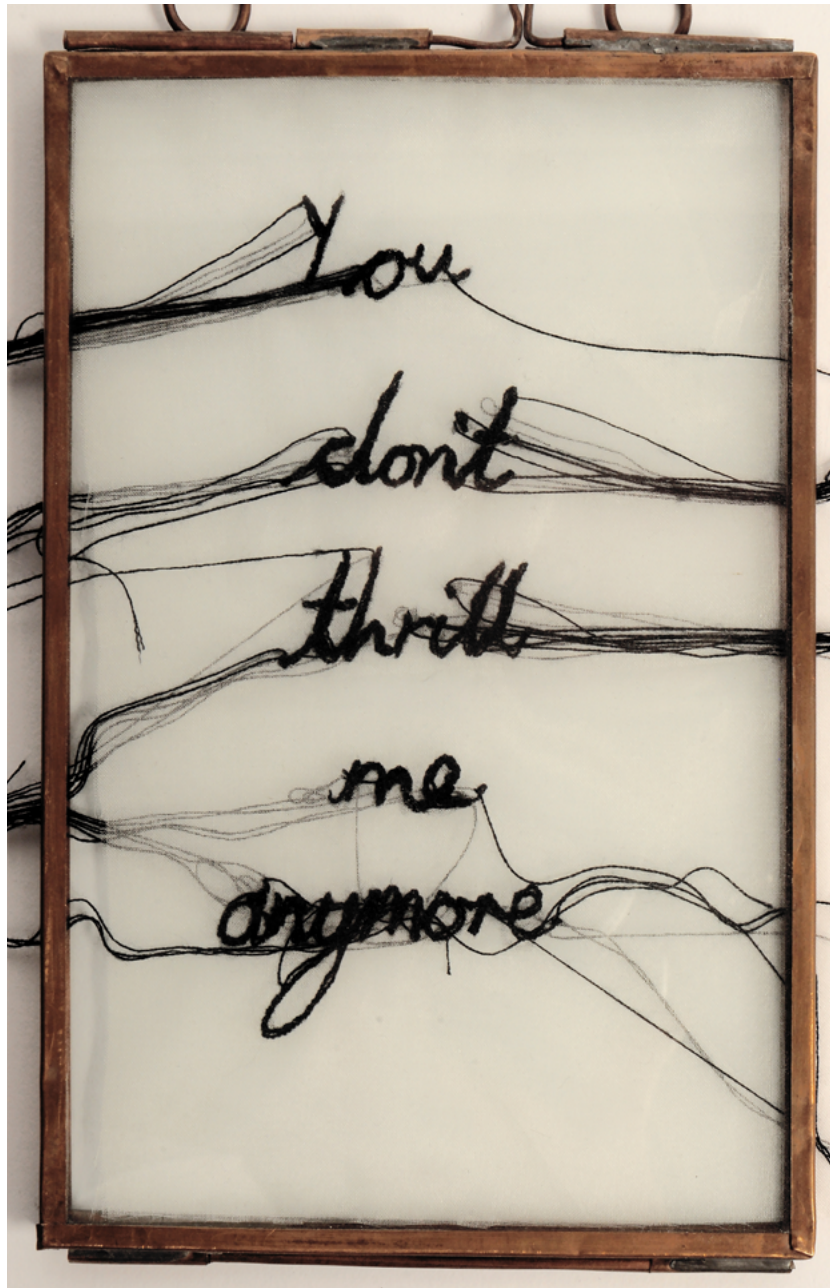 You
dont
thrill
me
anymore